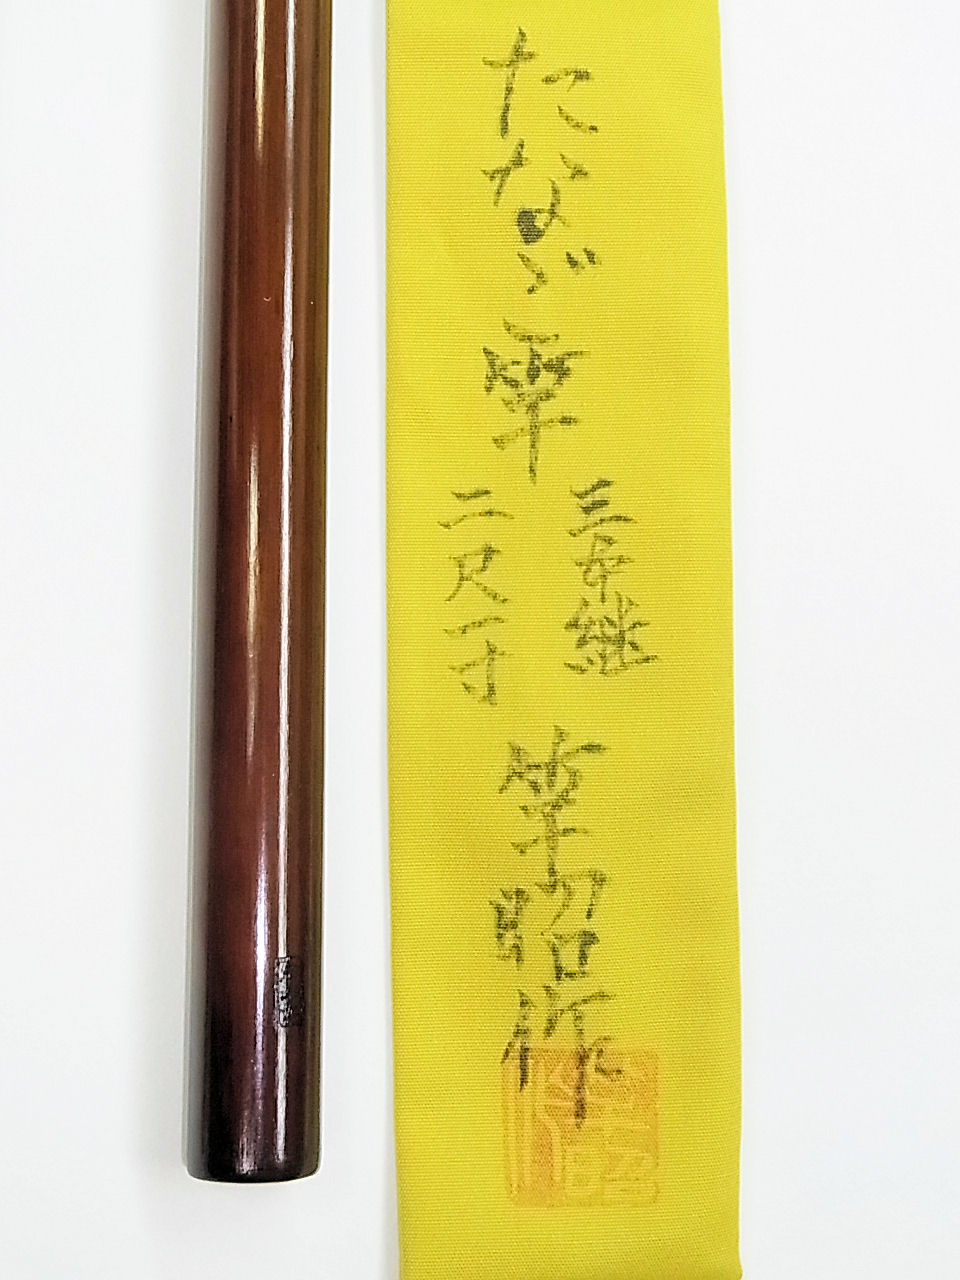 たなご竿
三本継
二尺一寸
竿昭作